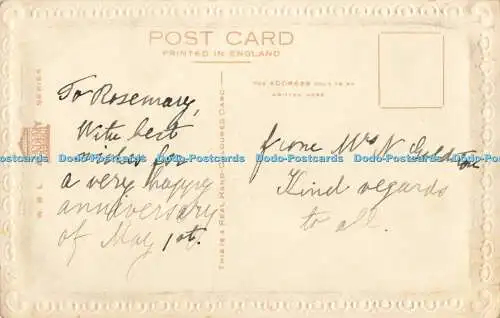 POST CARD
PRINTED IN ENGLAND
THE ADDRESS ONLY TO BE
WRITTEN HERE
W.B.L. SERIES
THIS IS A REAL HAND-COLOURED CARD
To Rosemary,
With best
wishes for
a very happy
anniversary
of May 1st.
from Mrs N.
Kind regards
to all.
Dodo-Postcards Dodo-Postcards Dodo-Postcards Dodo-Postcards Dodo-Postcards